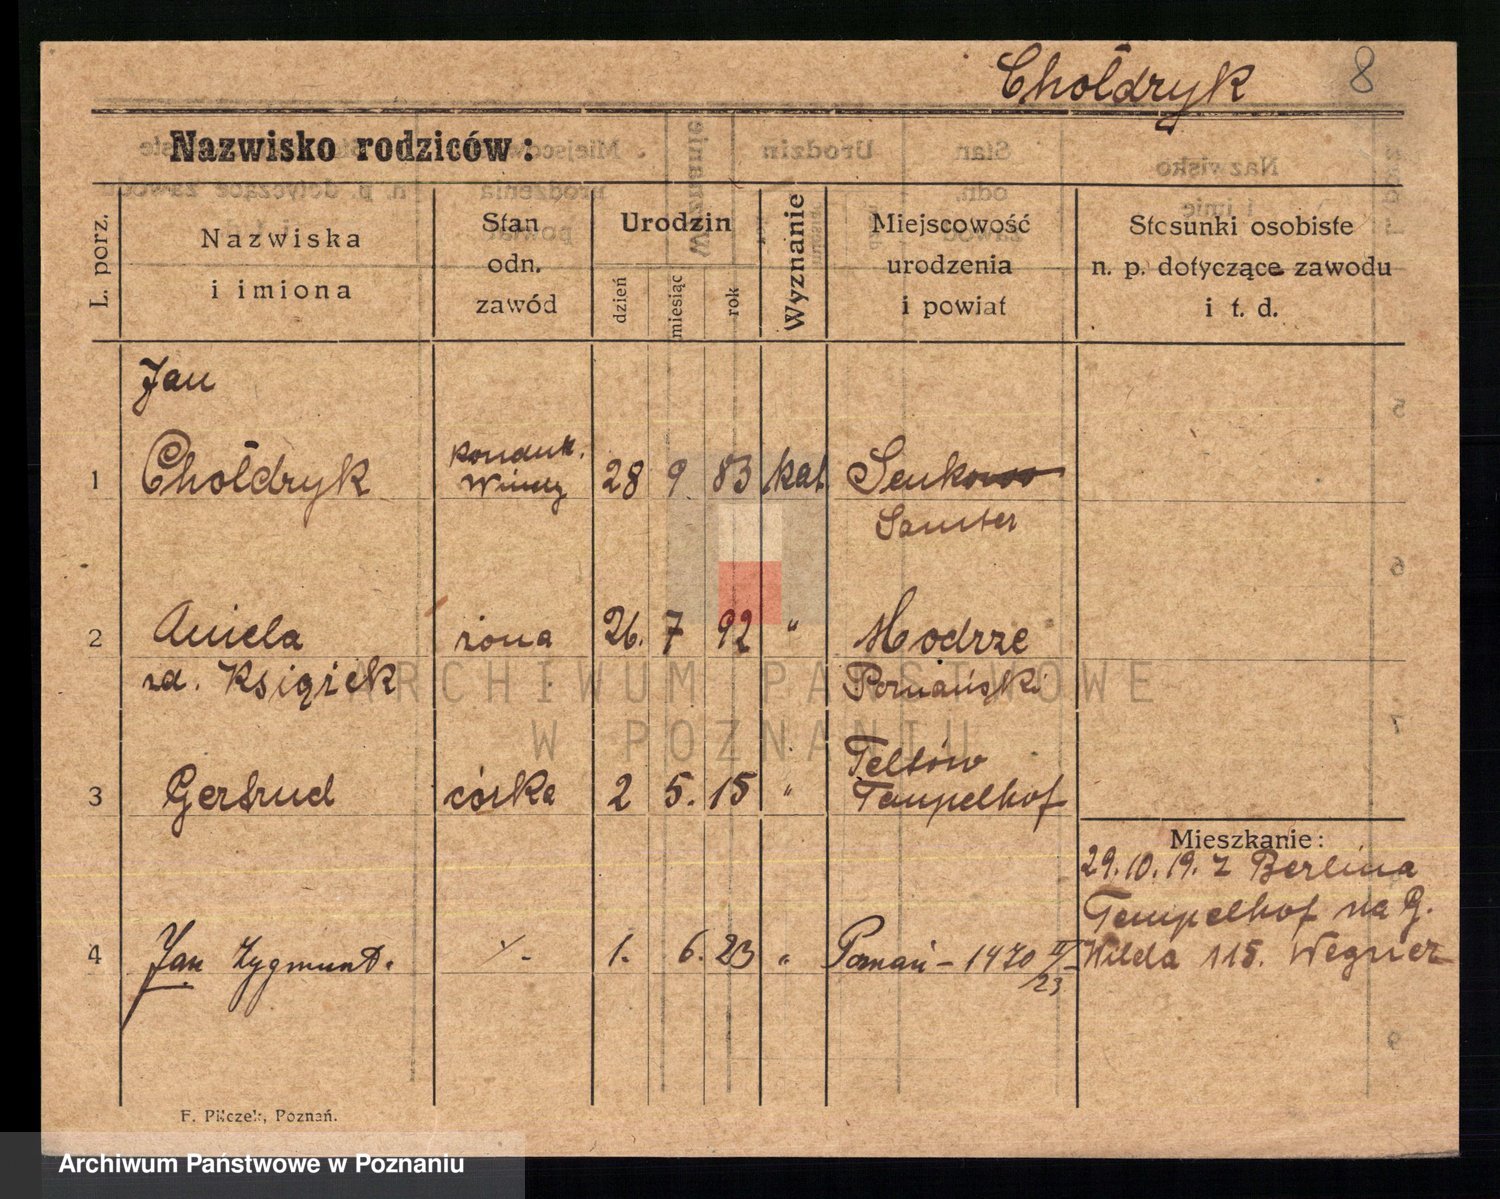 Chołdryk 8
Nazwisko rodziców:
L. porz.
Nazwiska
i imiona
Stan
odn.
zawód
Urodzin
dzień
miesiąc
rok
Wyznanie
Miejscowość
urodzenia
i powiat
Stosunki osobiste
n. p. dotyczące zawodu
i t. d.
Jan
1 Chołdryk kondukt. windy 28 9 83 kat. Senkowo
Samter
2 Aniela żona 26. 7 92 " Modrze
zd. Książek Poznański
3 Gertrud córka 2 5. 15 " Teltów
Tempelhof
Mieszkanie:
29.10.19. z Berlina
Tempelhof na G.
Wilda 115. Wegner
4 Jan Zygmunt. 1. 6. 23 " Poznań - 1470 II/23
F. Pilczek, Poznań.
ARCHIWUM PAŃSTWOWE
W POZNANIU
Archiwum Państwowe w Poznaniu